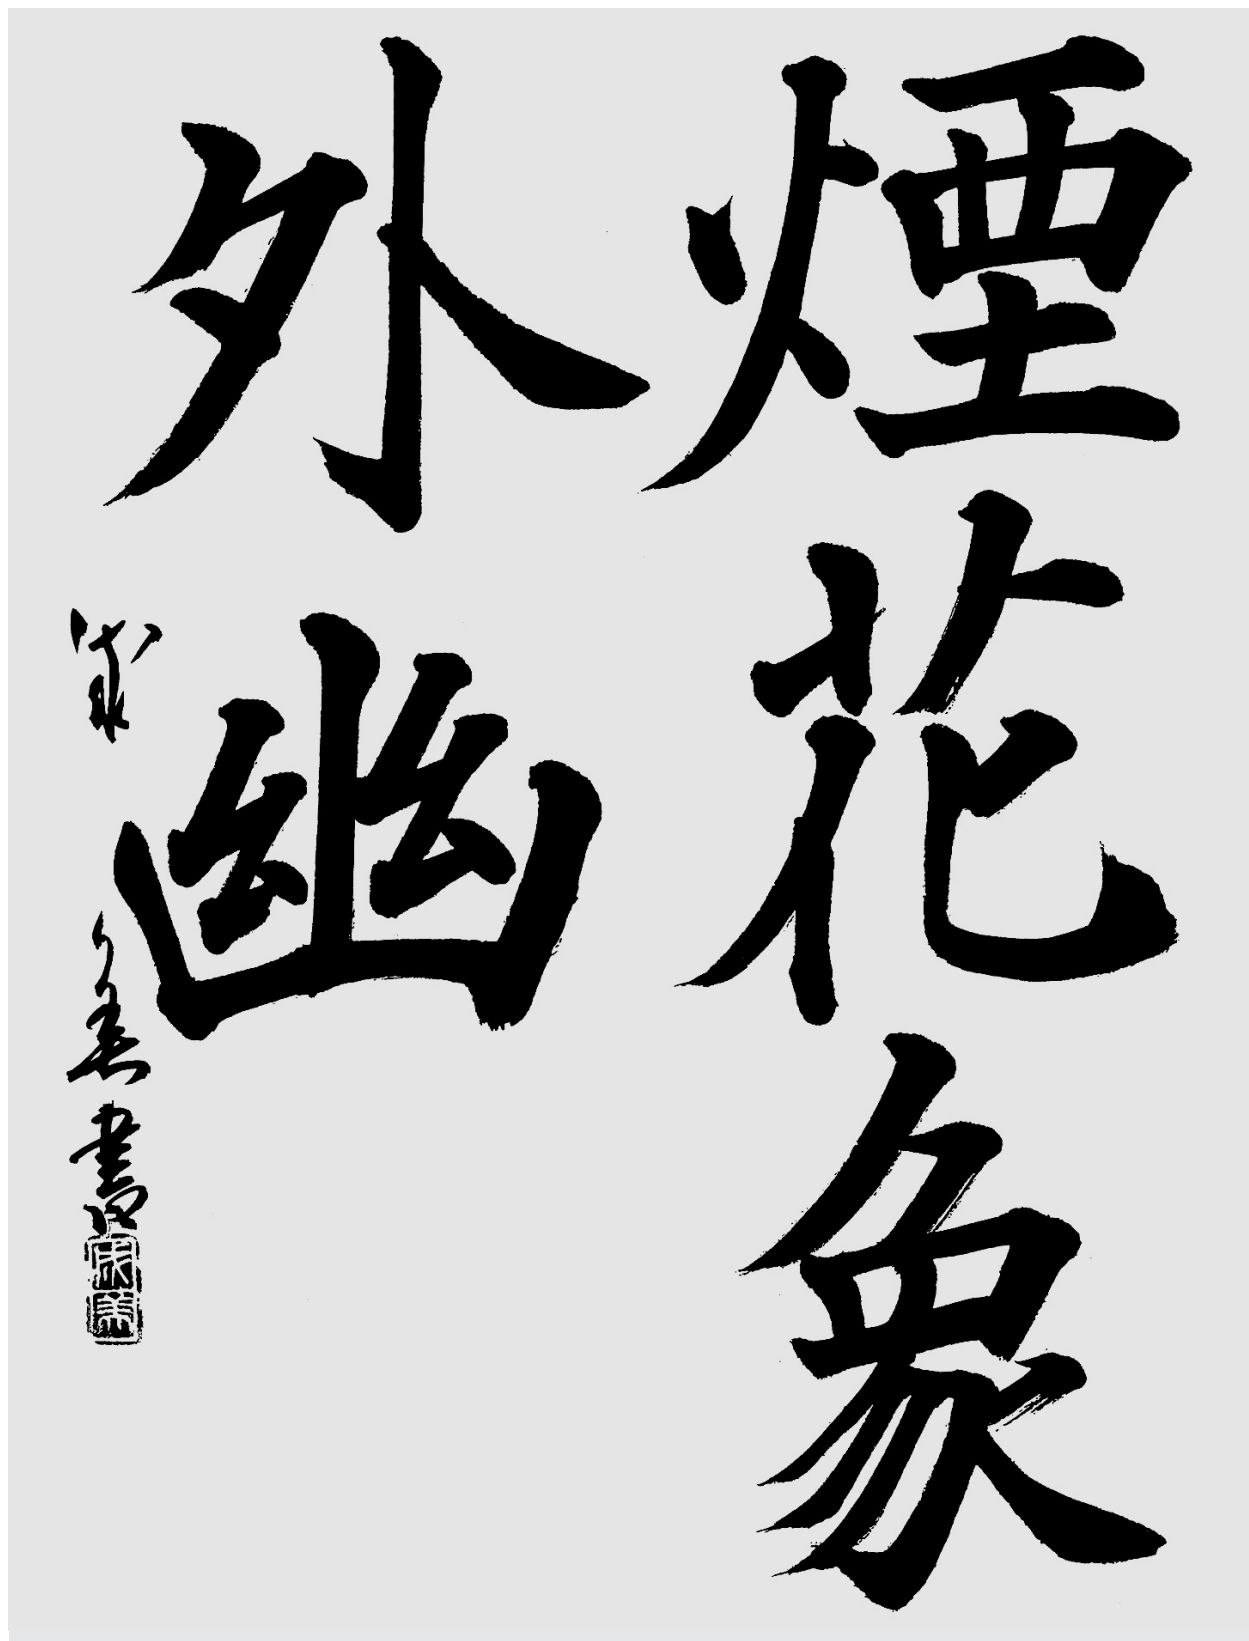 煙花象
外幽
書